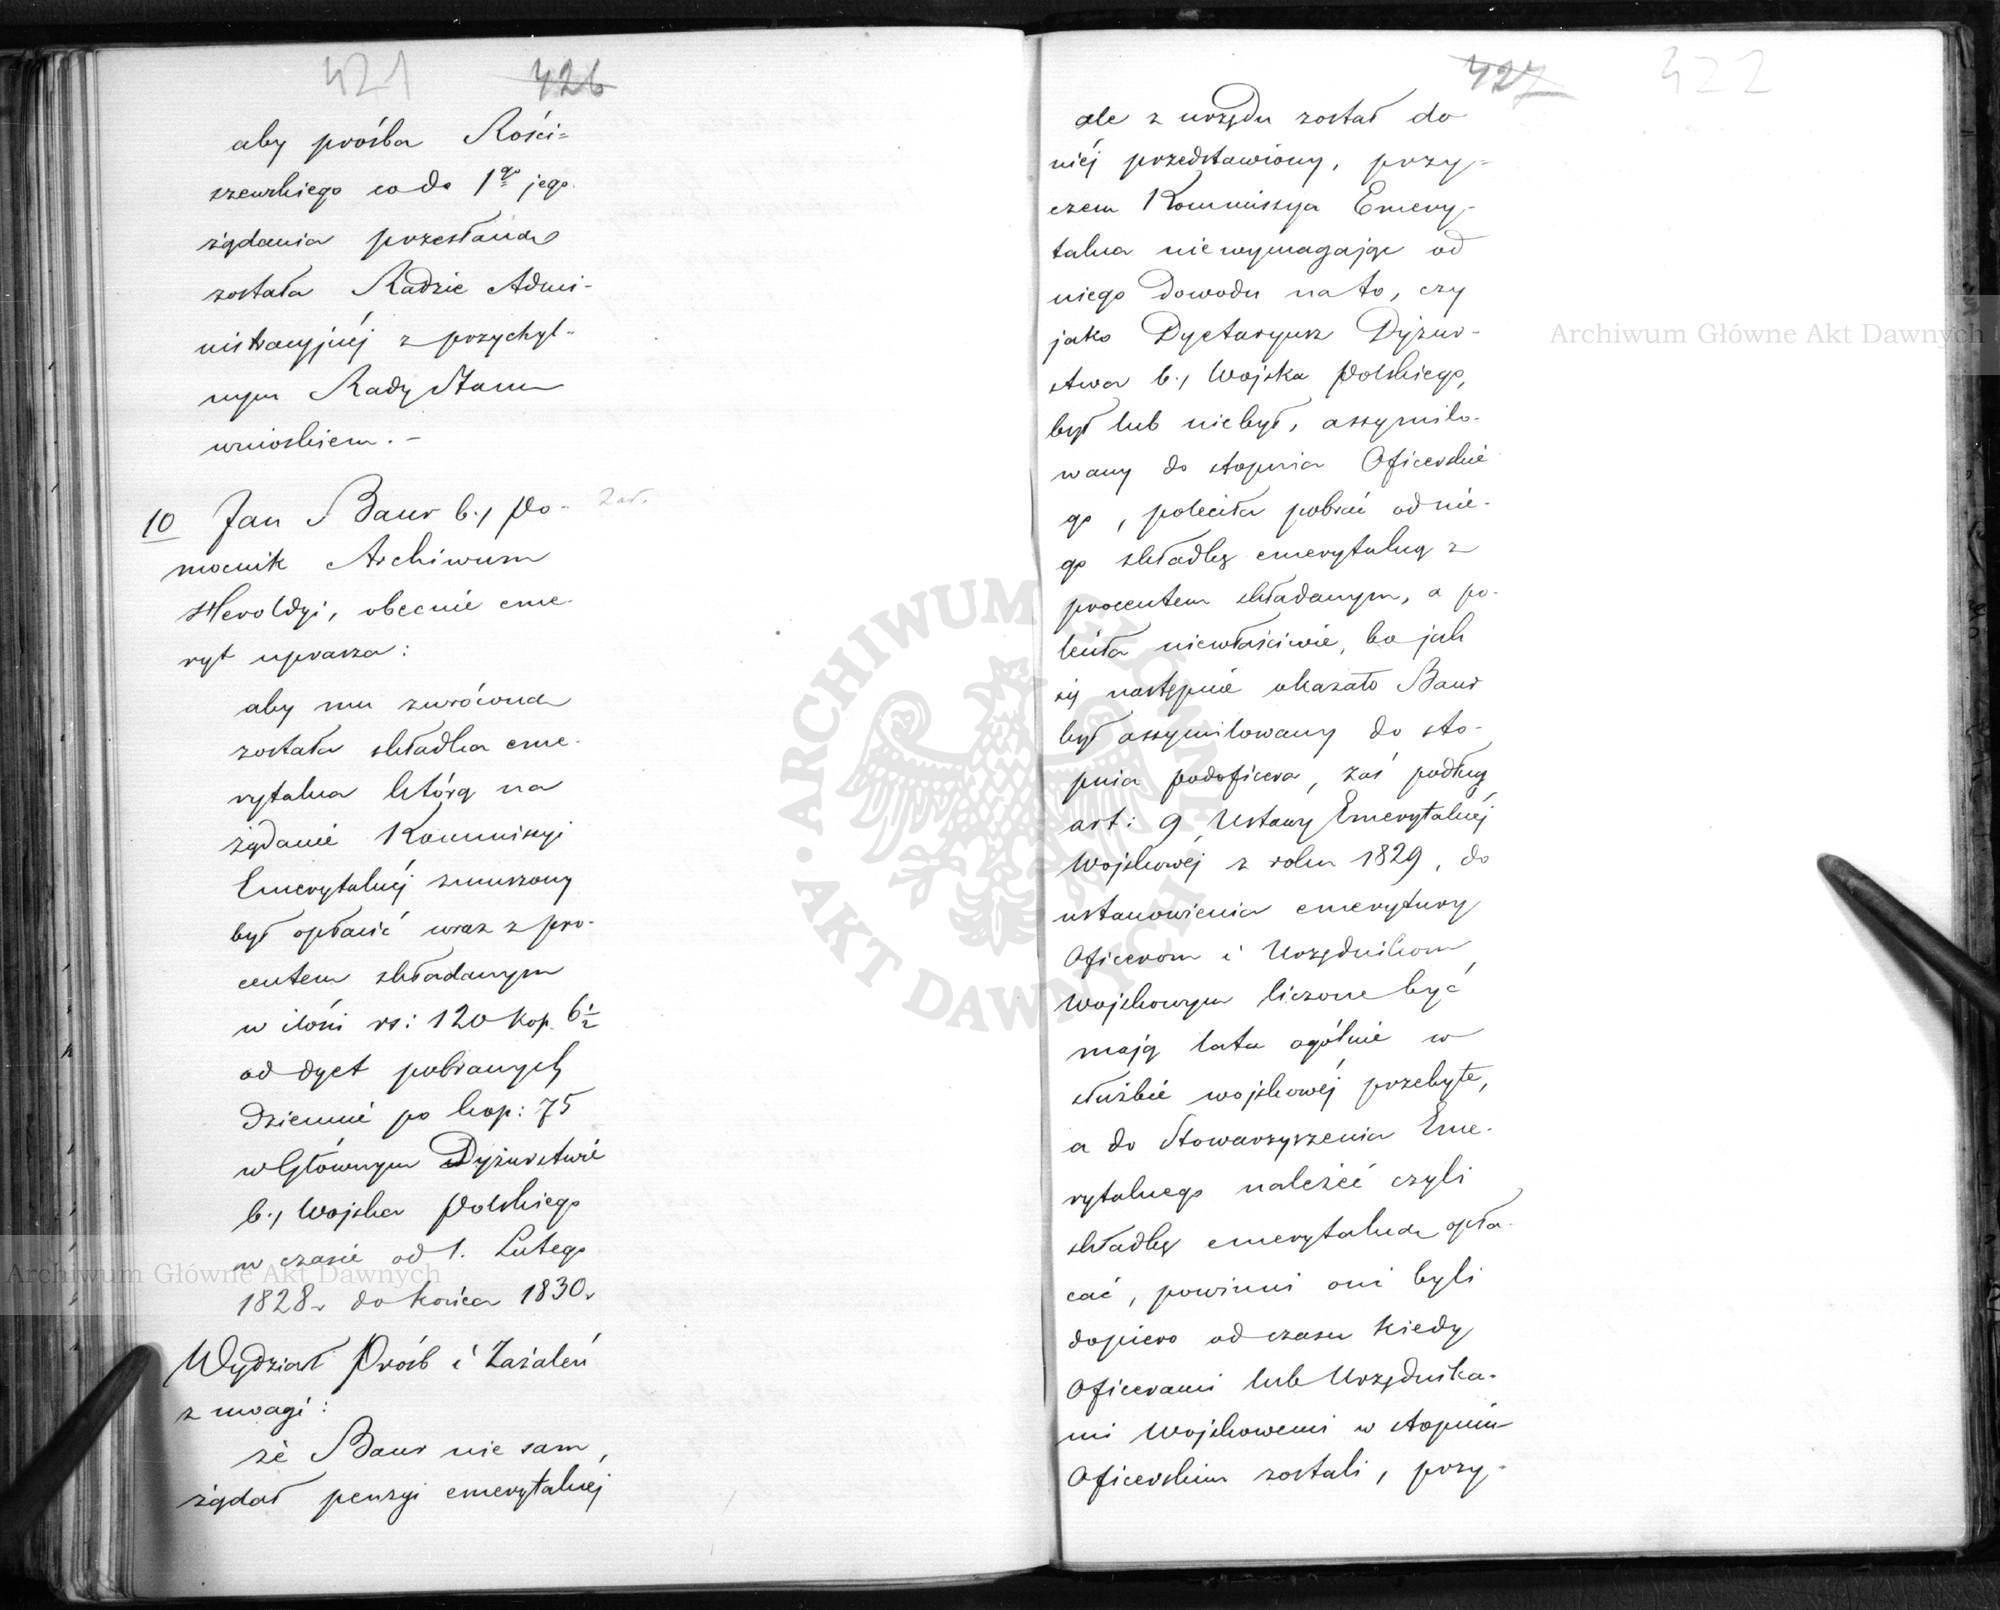 421 426
aby prośba Rości=
szewskiego co do 1go jego
żądania przesłana
została Radzie Admi-
nistracyjnéj z przychyl-
nym Rady Stanu
wnioskiem. –
10 Jan Baur b., Po-
mocnik Archiwum
Heroldyi, obecnie eme-
ryt uprasza:
aby mu zwrócona
została składka eme-
rytalna którą na
żądanie Kommissyi
Emerytalnéj zmuszony
był opłacić wraz z pro-
centem składanym
w ilości rs: 120 kop. 6½
od dyet pobranych
dziennie po kop: 75
w Głównym Dyżurstwie
b., Wojska Polskiego
w czasie od 1. Lutego
1828r do końca 1830r
Wydział Próśb i Zażaleń
z uwagi:
że Baur nie sam
żądał pensyi emerytalnéj
427 422
ale z urzędu został do
niéj przedstawiony, przy-
czem Kommissya Emery-
talna niewymagając od
niego dowodu na to, czy
jako Dyetaryusz Dyżur-
stwa b., Wojska Polskiego,
był lub niebył, assymilo-
wany do stopnia Oficerskie
go, poleciła pobrać od nie-
go składkę emerytalną z
procentem składanym, a po-
leciła niewłaściwie, bo jak
się następnie okazało Baur
był assymilowany do sto-
pnia podoficera, zaś podług
art: 9 Ustawy Emerytalnéj
Wojskowéj z roku 1829, do
ustanowienia emerytury
Oficerom i Urzędnikom
Wojskowym liczone być
mają lata ogólnie w
służbie wojskowéj przebyte,
a do Stowarzyszenia Eme-
rytalnego należeć czyli
składkę emerytalną opła-
cać, powinni oni byli
dopiero od czasu kiedy
Oficerami lub Urzędnika-
mi Wojskowemi w stopniu
Oficerskim zostali, przy-
Archiwum Główne Akt Dawnych
Archiwum Główne Akt Dawnych
ARCHIWUM GŁÓWNE · AKT DAWNYCH ·